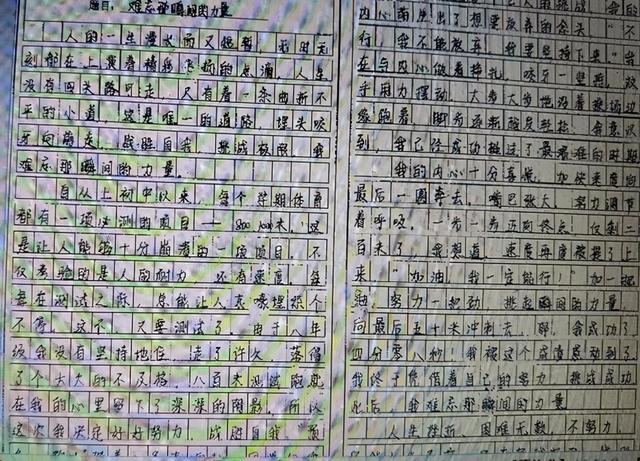 题目：难忘那瞬间的力量
人的一生漫长而又短暂，我时无
刻都在上演着精彩飞扬的点滴，人生
没有回头路可走，只有着一条曲折不
平的小道，这是唯一的道路，埋头咬
牙向前走，战胜自我，挑战极限，我
难忘那瞬间的力量。
自从上初中以来，每个学期体育
都有一项必测的项目——800/1000米，这
是让人能够十分崩溃的一项项目，不
仅考验的是人的耐力，还有速度，每
每在测试之际，总能让人哀嚎埋怨个
不停，这不，又要测试了，由于八年
级我没有坚持地住，走了许久，落得
了个大大的不及格，八百米测试
在我的心里留下了深深的阴影，所以
这次我决定好好努力，战胜自我
内心蹦出了想要放弃的念头，"不
行，我不能放弃，我要坚持下来"
在与内心做着挣扎，咬牙一坚持，双
手用力摆动，大步大步地沿着操场边
缘跑着，脚步逐渐
到，我已经成功挺过了最艰难的时期
我的内心十分喜悦，加快速度向
最后一圈奔去，嘴巴张大，努力调节
着呼吸，一步一步迈向终点，仅剩二
百米了，我想道，速度再度被提了上
来，"加油，我一定能行！"加一把
油，努力一把劲，挑起瞬间的力量，
向最后五十米冲刺去，耶，我成功了
四分零八秒！我被这个成绩感动到了
我终于凭借着自己的努力，挑战成功
此后，我难忘那瞬间的力量
人生挫折、困难无数，不努力，